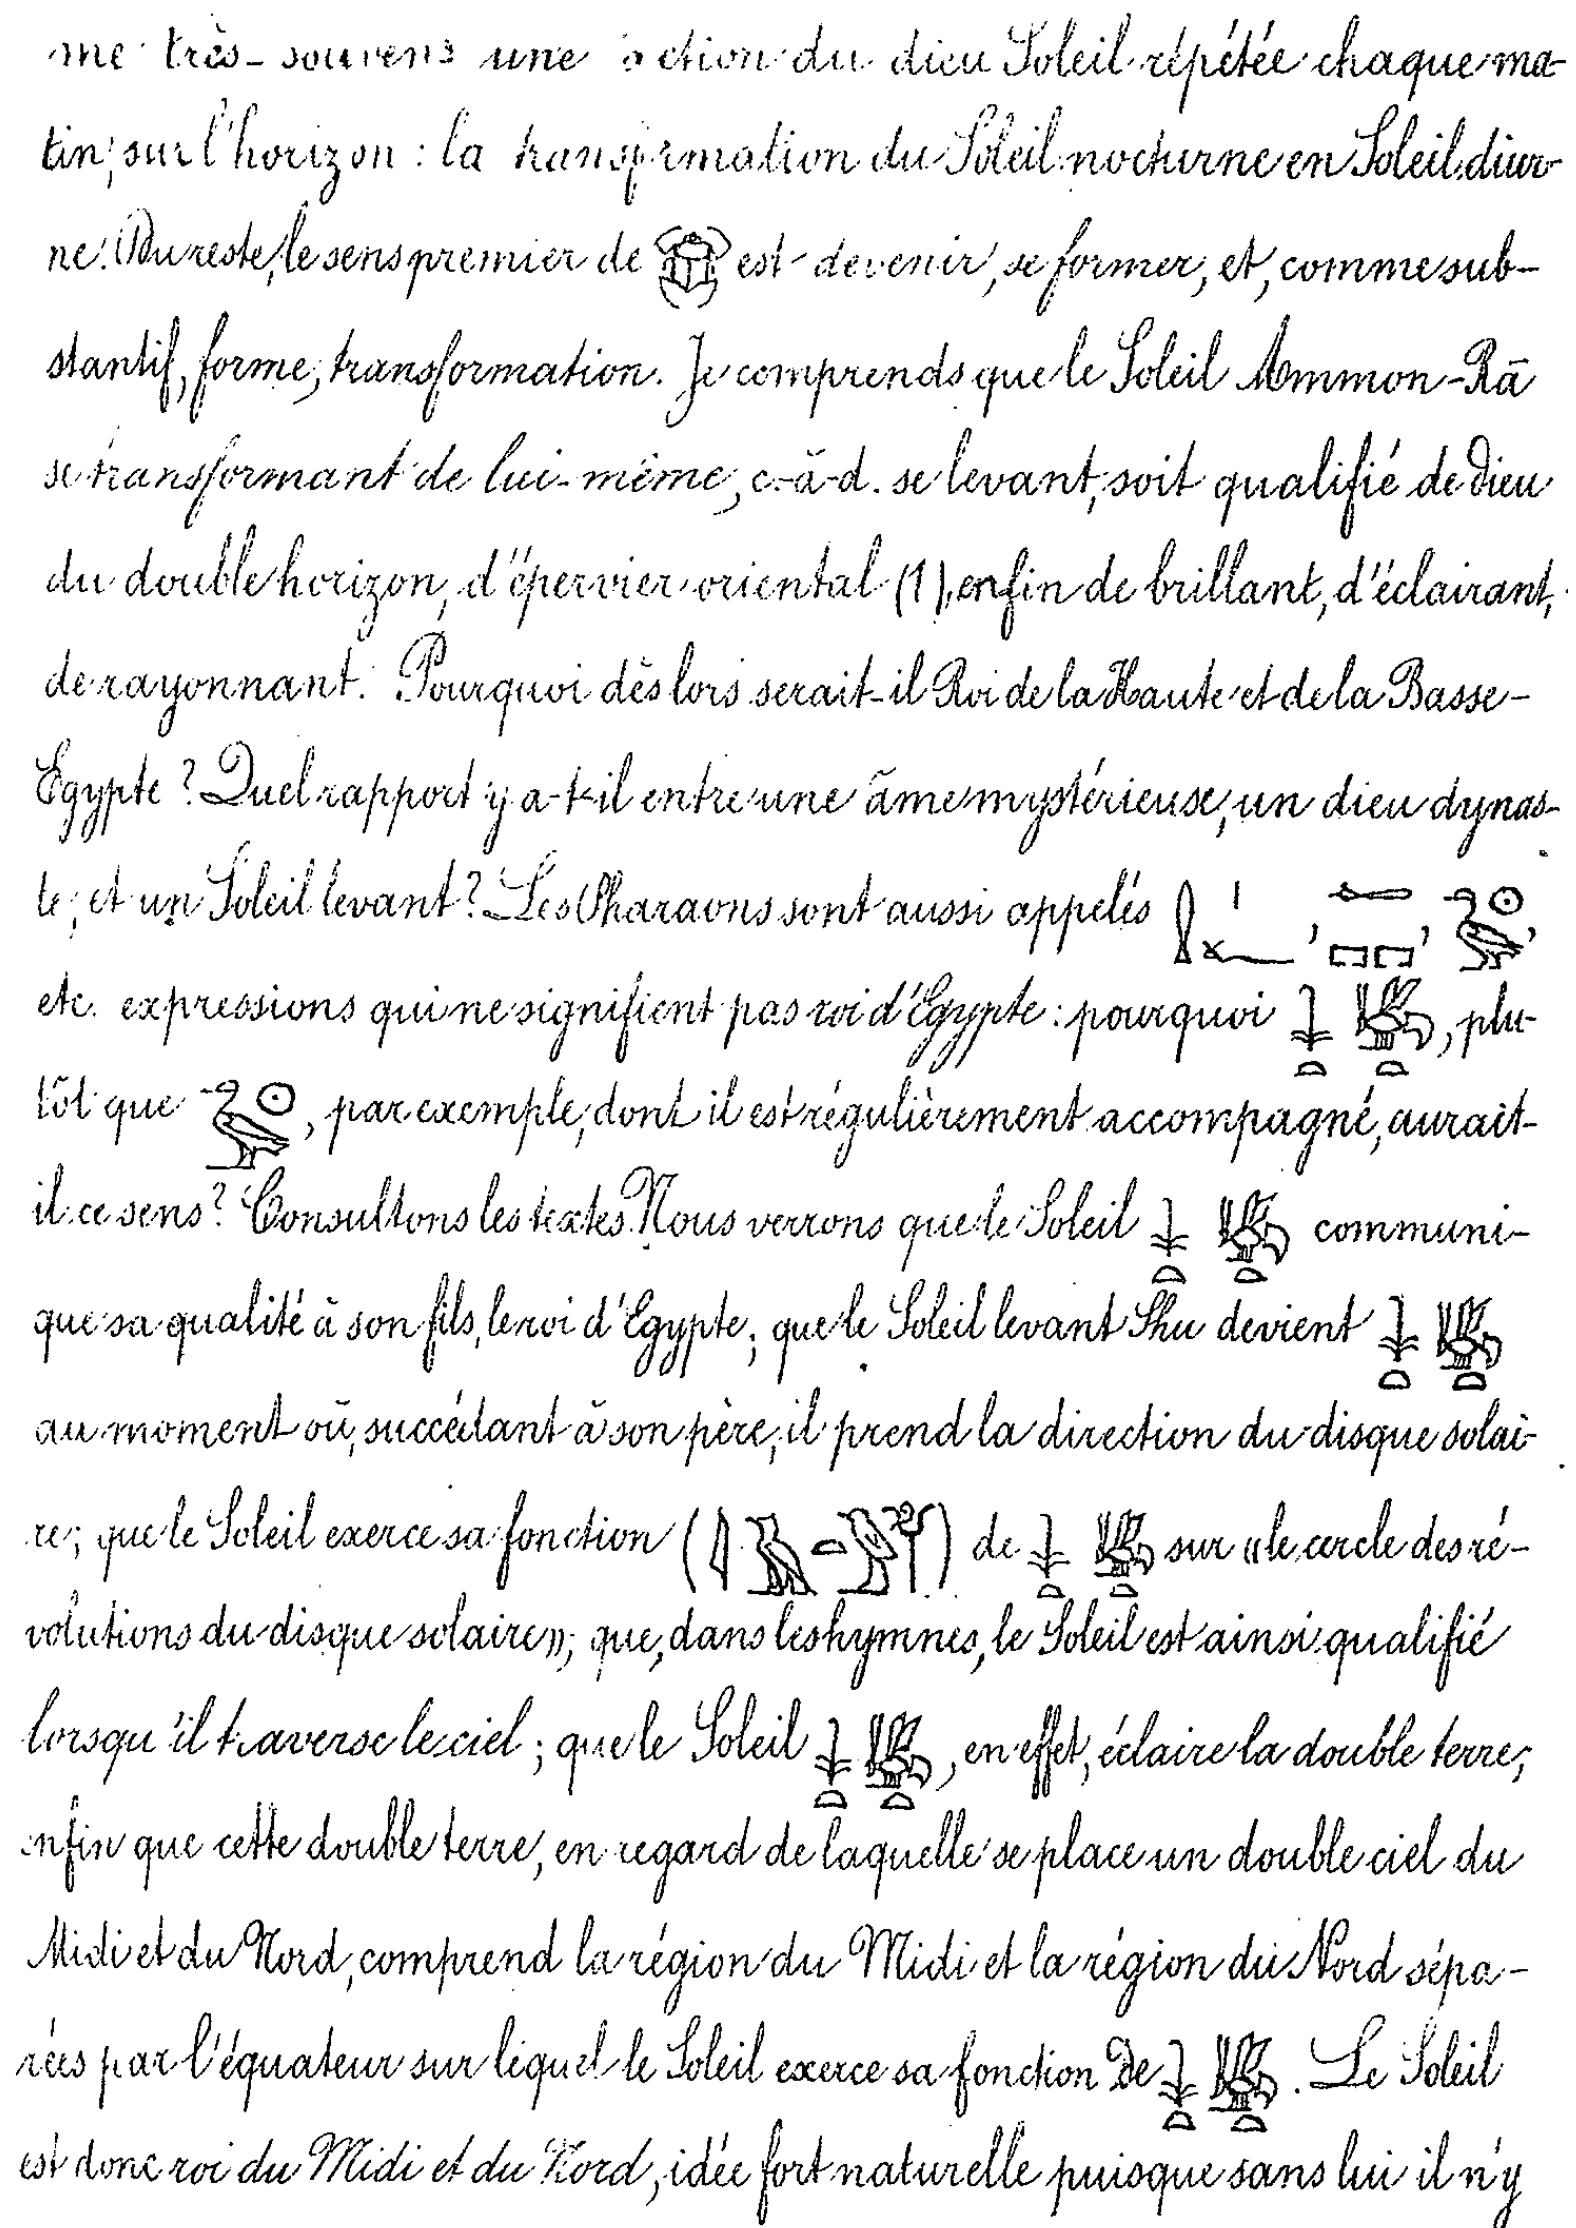 me très-souvent une action du dieu Soleil répétée chaque ma-
tin, sur l'horizon : la transformation du Soleil nocturne en Soleil diur-
ne. Du reste, le sens premier de 𓆣 est devenir, se former, et, comme sub-
stantif, forme, transformation. Je comprends que le Soleil Ammon-Rā
se transformant de lui-même, c.-à-d. se levant, soit qualifié de dieu
du double horizon, d'épervier oriental (1), enfin de brillant, d'éclairant,
de rayonnant. Pourquoi dès lors serait-il Roi de la Haute et de la Basse-
Egypte ? Quel rapport y a-t-il entre une âme mystérieuse, un dieu dynas-
te, et un Soleil levant ? Les Pharaons sont aussi appelés
etc. expressions qui ne signifient pas roi d'Egypte : pourquoi 𓇓𓏏 𓆤𓏏, plu-
tôt que 𓅭𓇳, par exemple, dont il est régulièrement accompagné, aurait-
il ce sens ? Consultons les textes. Nous verrons que le Soleil 𓇓𓏏 𓆤𓏏 communi-
que sa qualité à son fils, le roi d'Egypte ; que le Soleil levant Shu devient 𓇓𓏏 𓆤𓏏
au moment où, succédant à son père, il prend la direction du disque solai-
re ; que le Soleil exerce sa fonction (𓇋𓅓) de 𓇓𓏏 𓆤𓏏 sur «le cercle des ré-
volutions du disque solaire» ; que, dans les hymnes, le Soleil est ainsi qualifié
lorsqu'il traverse le ciel ; que le Soleil 𓇓𓏏 𓆤𓏏, en effet, éclaire la double terre ;
enfin que cette double terre, en regard de laquelle se place un double ciel du
Midi et du Nord, comprend la région du Midi et la région du Nord sépa-
rées par l'équateur sur lequel le Soleil exerce sa fonction de 𓇓𓏏 𓆤𓏏. Le Soleil
est donc roi du Midi et du Nord, idée fort naturelle puisque sans lui il n'y